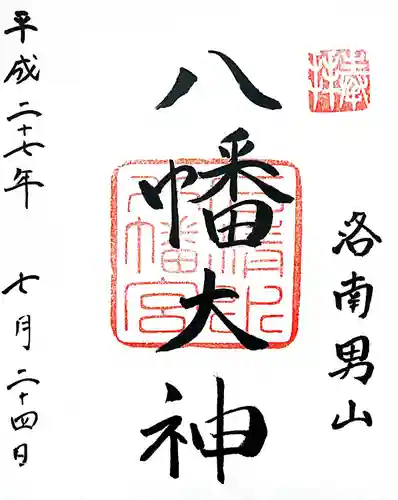 奉拝
洛南男山
八幡大神
石清水八幡宮
平成二十七年 七月二十四日